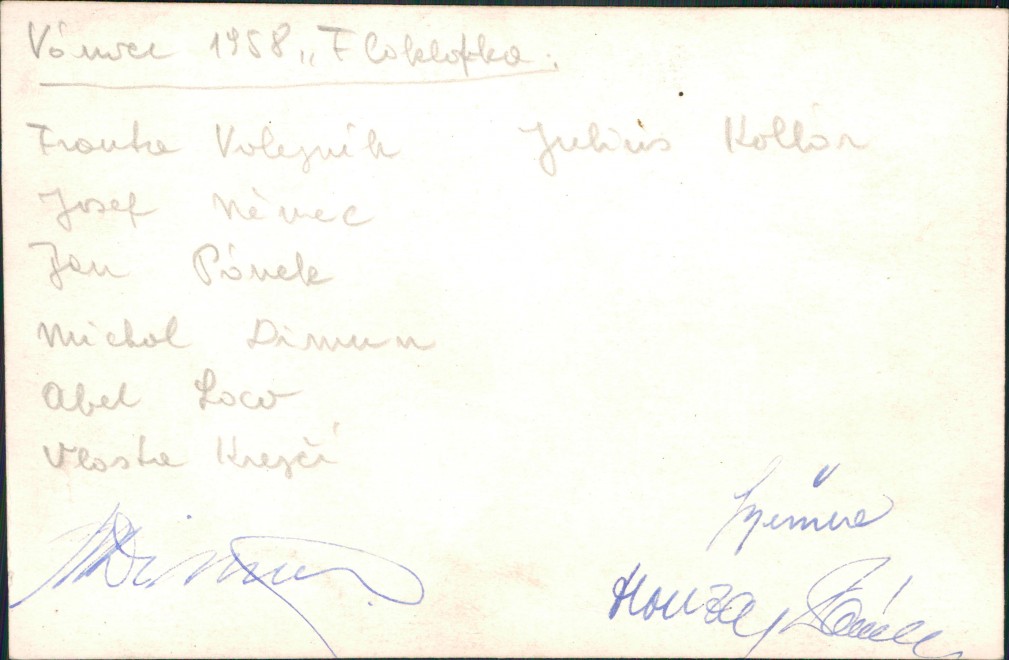 Vánoce 1958 „Flokloťka.
Franta Volejník Julius Kollár
Josef Němec
Jan Pánek
Michal Dimun
Abel Loco
Vlasta Krejčí
MDimun
Honza Pánek